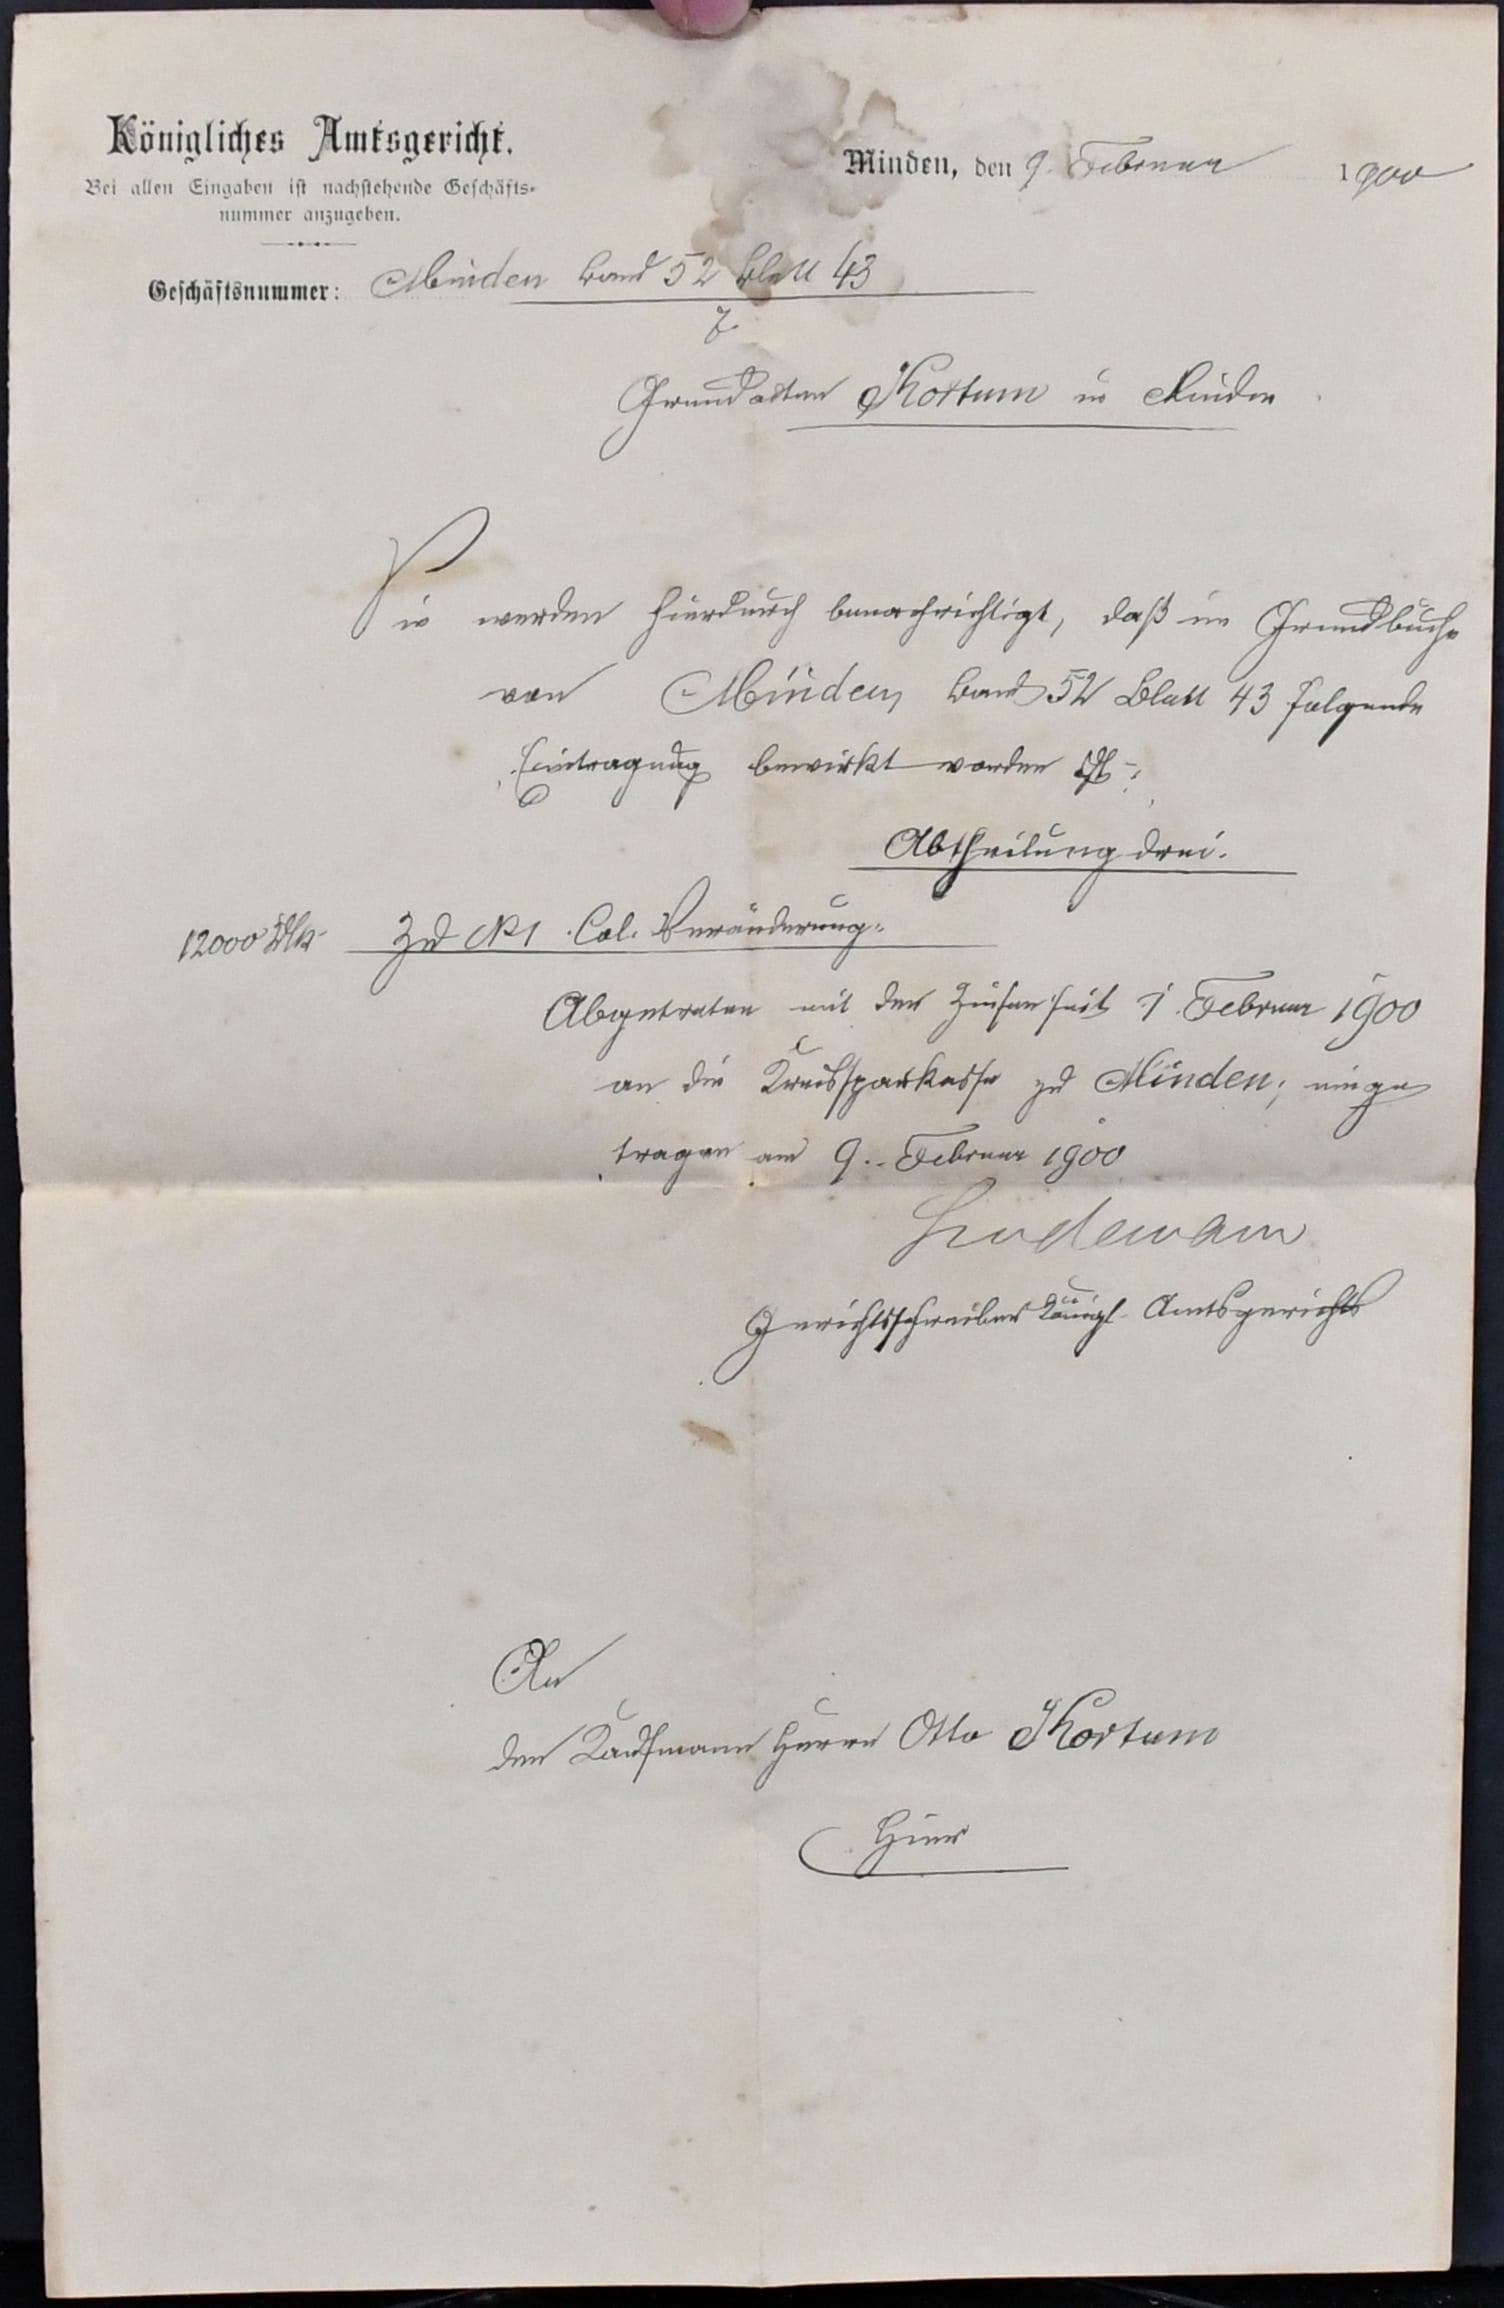 Königliches Amtsgericht.
Bei allen Eingaben ist nachstehende Geschäfts-
nummer anzugeben.
Minden, den 9. Februar 1900
Geschäftsnummer: Minden Band 52 Blatt 43
7.
Grundakten Kortum in Minden
Sie werden hierdurch benachrichtigt, daß im Grundbuche
von Minden Band 52 Blatt 43 folgende
Eintragung bewirkt worden ist:
Abtheilung drei.
12000 Mk. Zu No 1 Col. Veränderung:
Abgetreten mit den Zinsen seit 1. Februar 1900
an die Kreissparkasse zu Minden; einge
tragen am 9. Februar 1900
Gerichtsschreiber Königl. Amtsgerichts
An
den Kaufmann Herrn Otto Kortum
Hier